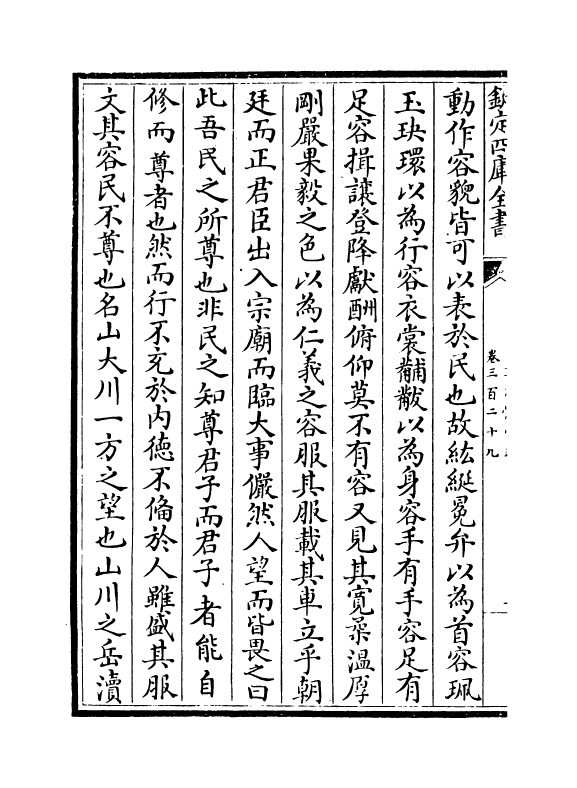 欽定四庫全書
卷三百二十九
動作容貌皆可以表於民也故紘綖冕弁以為首容珮
玉玦環以為行容衣裳黼黻以為身容手有手容足有
足容揖讓登降獻酬俯仰莫不有容又見其寬柔溫厚
剛嚴果毅之色以為仁義之容服其服載其車立乎朝
廷而正君臣出入宗廟而臨大事儼然人望而皆畏之曰
此吾民之所尊也非民之知尊君子而君子者能自
修而尊者也然而行不充於内徳不備於人雖盛其服
文其容民不尊也名山大川一方之望也山川之岳瀆